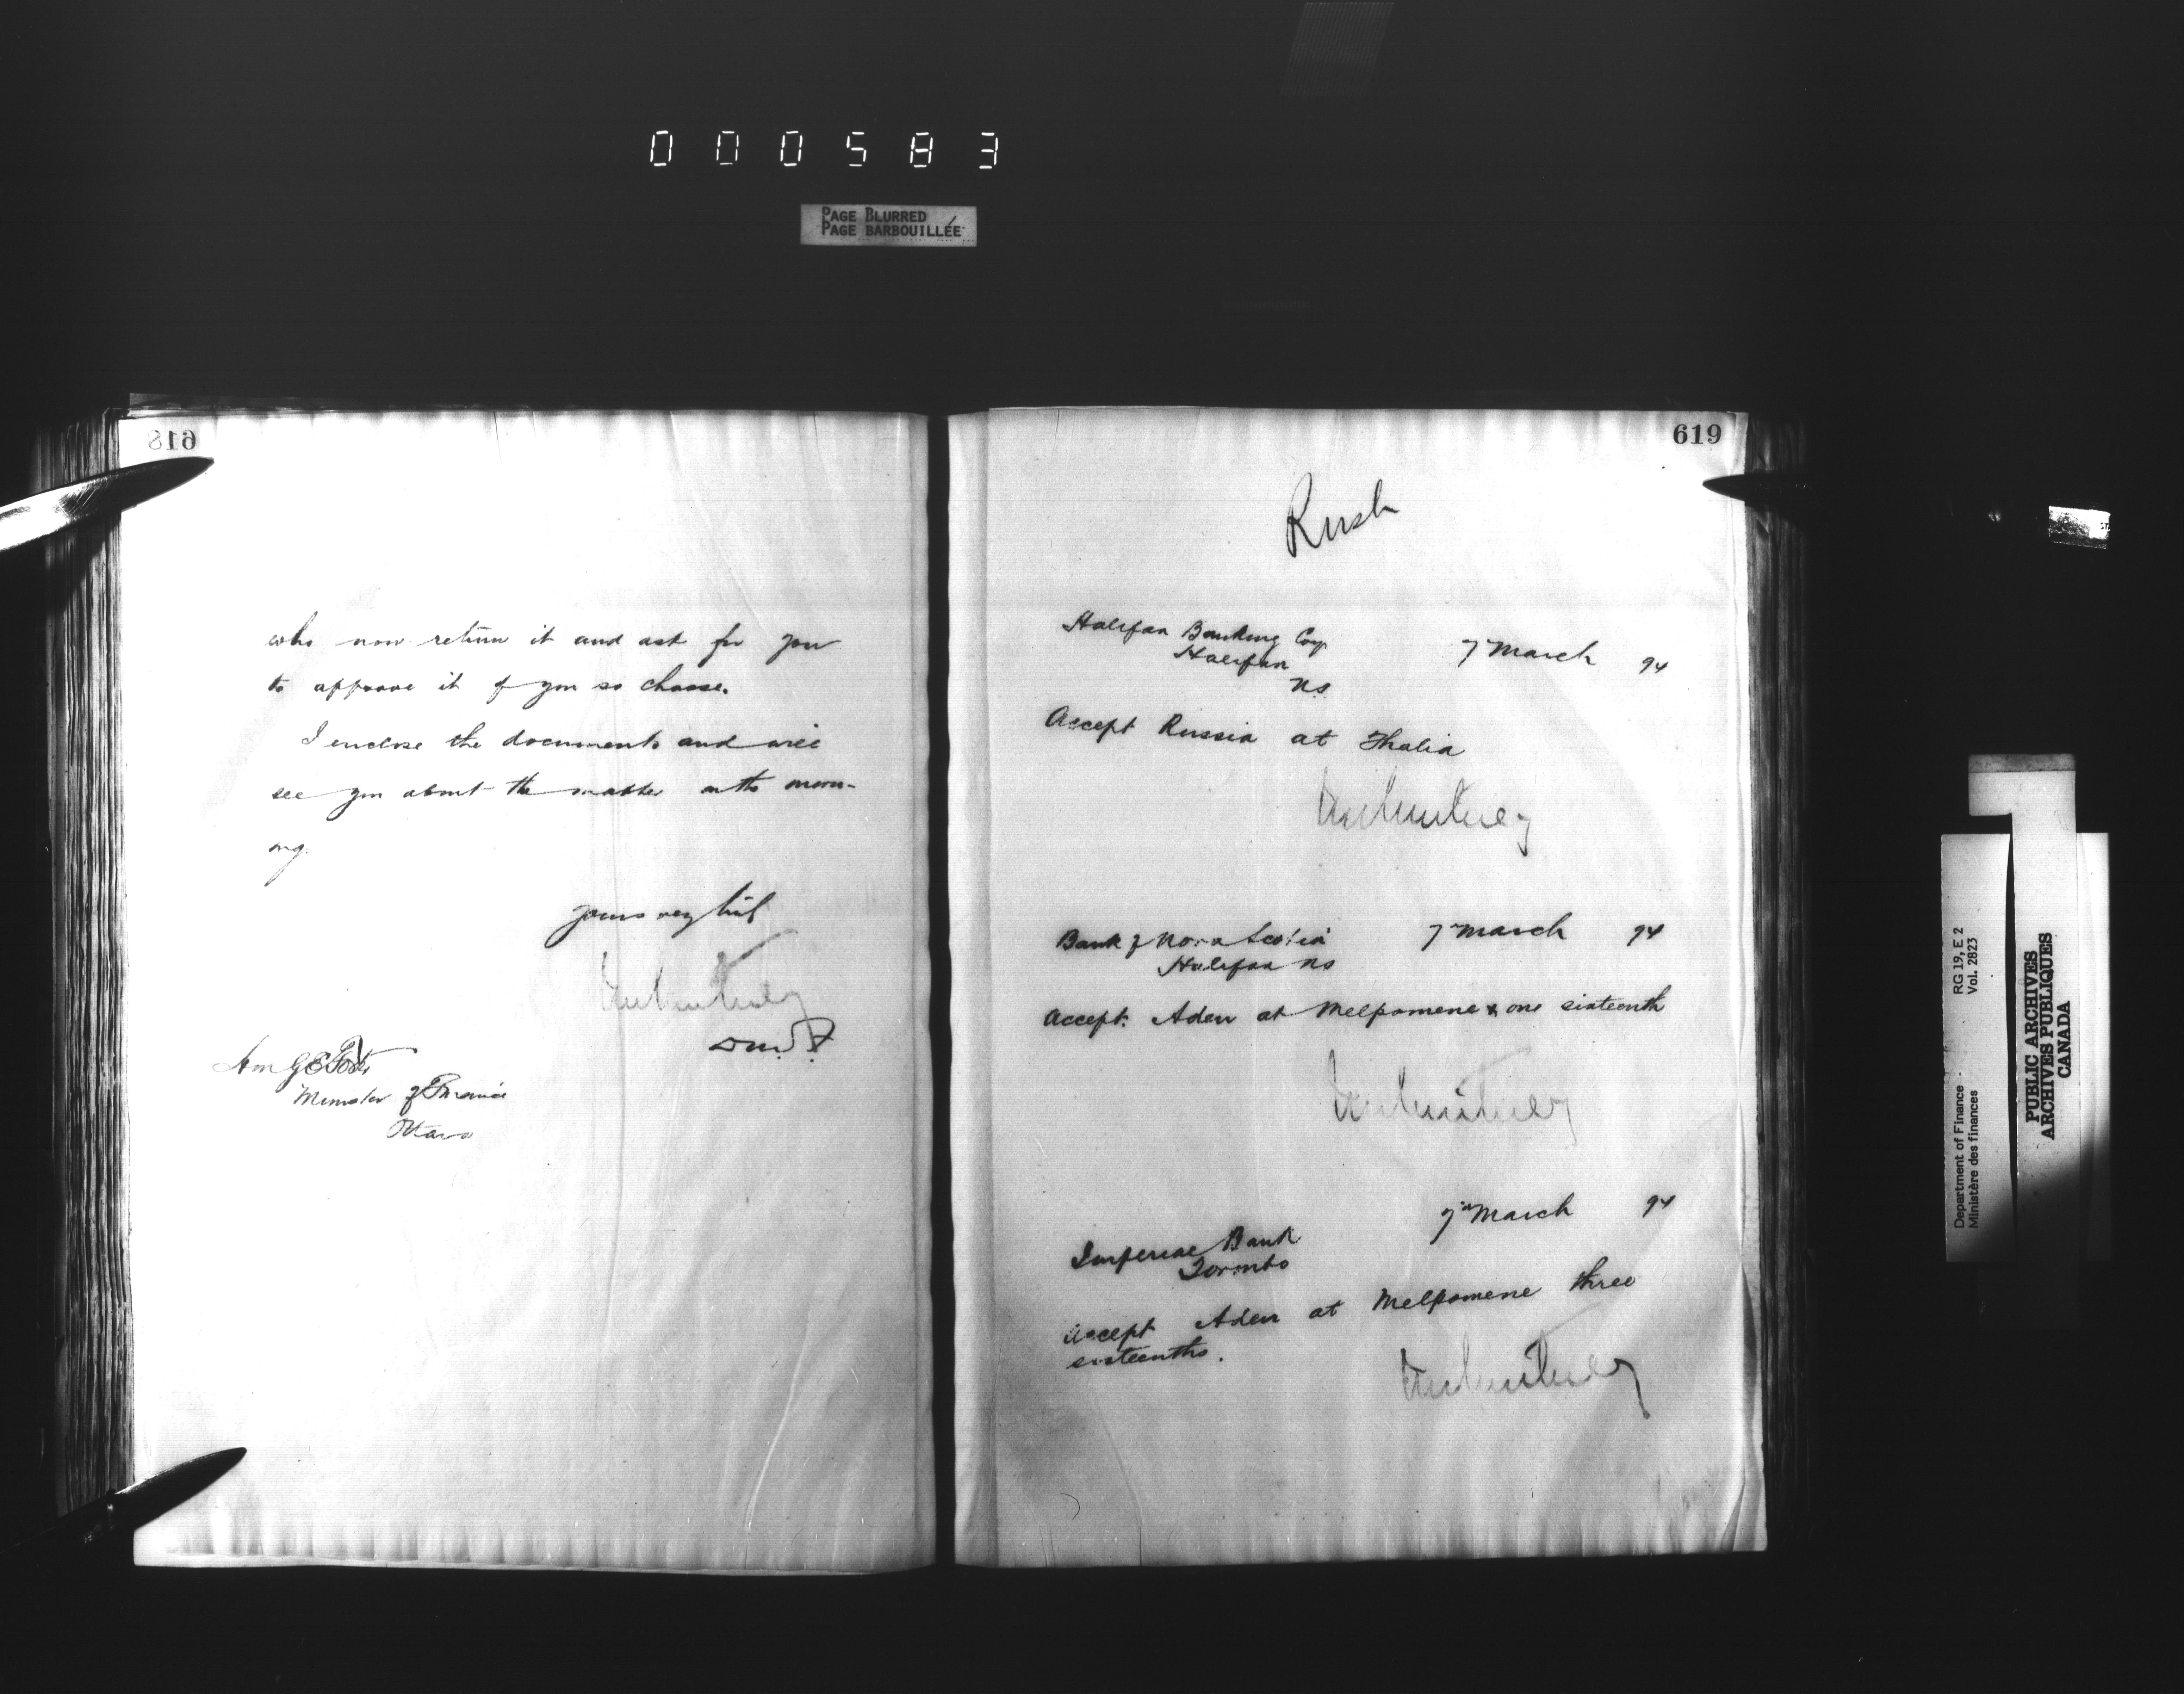 000583
PAGE BLURRED
PAGE BARBOUILLÉE
618
who now return it and ask for you
to approve it if you so choose.
I enclose the documents and will
see you about the matter in the morn-
ing.
Yours very truly
D M F
Hon G E Foster
Minister of Finance
Ottawa
619
Rush
Halifax Banking Coy
Halifax
NS
7 March 94
Accept Russia at Thalia
Bank of Nova Scotia
Halifax NS
7 March 94
Accept Aden at Melpomene & one sixteenth
7 March 94
Imperial Bank
Toronto
Accept Aden at Melpomene three
sixteenths.
Department of Finance RG 19, E 2
Ministère des finances Vol. 2823
PUBLIC ARCHIVES
ARCHIVES PUBLIQUES
CANADA